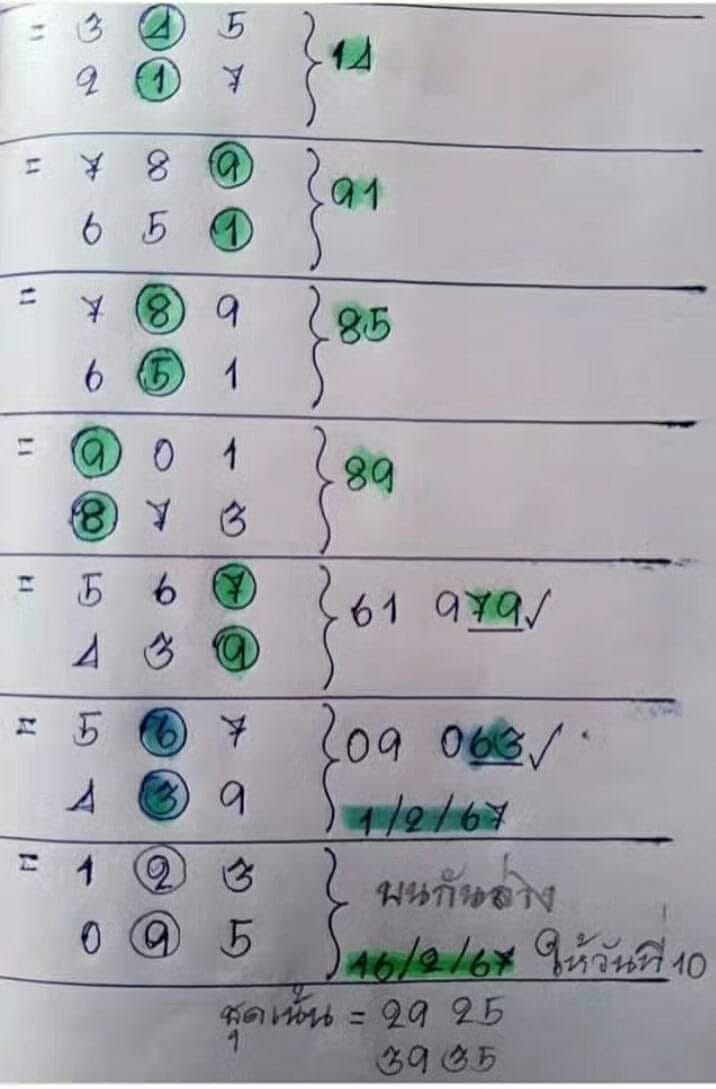 = 3 4 5 } 14
2 1 7
= 7 8 9 } 91
6 5 1
= 7 8 9 } 85
6 5 1
= 9 0 1 } 89
8 7 3
= 5 6 7 } 61 979✓
4 3 9
= 5 6 7 } 09 063✓
4 3 9 1/2/67
= 1 2 3 } บนกันล่าง
0 9 5 16/2/67 ให้วันที่ 10
ชุดเน้น = 29 25
39 35